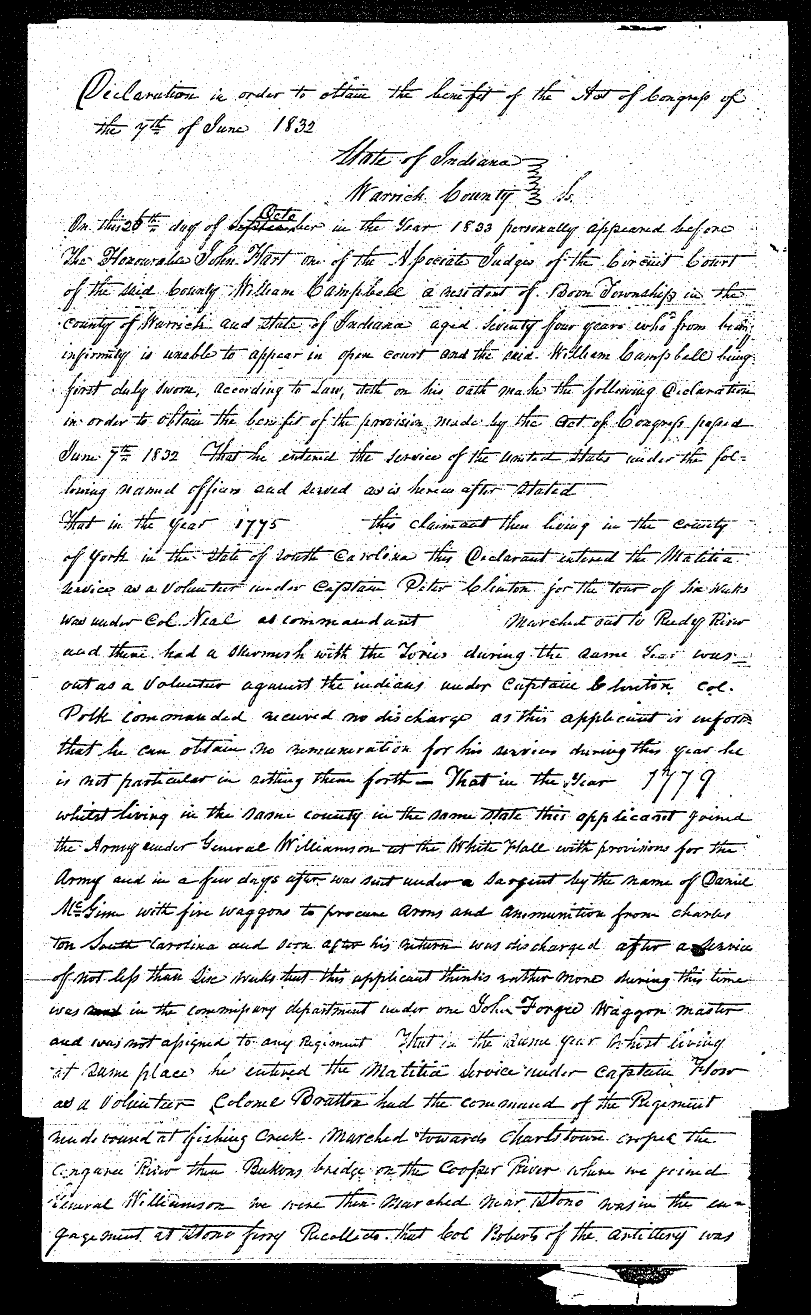 Declaration in order to obtain the benefit of the Act of Congress of
the 7th of June 1832
State of Indiana
Warrick County } Ss.
On this 25th day of September Octo in the Year 1833 personally appeared before
The Honourable John Hart one of the Associate Judges of the Circuit Court
of the said County William Campbell a resident of Boon Township in the
county of Warrick and state of Indiana aged Seventy four years who from
infirmity is unable to appear in open court and the said William Campbell being
first duly sworn, according to Law, doth on his oath make the following Declaration
in order to obtain the benefit of the provision made by the act of Congress passed
June 7th 1832 That he entered the service of the united states under the fol=
lowing named officers and served as is herein after stated
That in the Year 1775 this claimant then living in the county
of York in the state of South Carolina this Declarant entered the Malitia
service as a Volunteer under Captain Peter Clinton for the tour of Six weeks
was under Col. Neal as commandant Marched out to Reedy River
and there had a skirmish with the Tories during the same Year was
out as a Volunteer against the indians under Captain Clinton Col.
Polk commanded received no discharge as this applicant is inform
that he can obtain no remuneration for his services during this year he
is not particular in setting them forth — That in the Year 1779
whilst living in the same county in the same state this applicant joined
the Army under General Williamson at the White Hall with provisions for the
Army and in a few days after was sent under a Sargent by the name of Daniel
McGim with five waggons to procure arms and ammunition from Charles
ton South Carolina and soon after his return was discharged after a service
of not less than Six weeks but this applicant thinks rather more during this time
was in the commissary department under one John Forgee Waggon master
and was not assigned to any Regiment That in the same year Whist living
at same place he entered the Malitia service under Captain Flow
as a Volunteer Colonel Bratton had the command of the Regement
rendevound at fishing Creek. Marched towards Charlstown crossed the
Congaree River then Bukons bridge on the Cooper River where we joined
General Williamson we were then marched near Stono was in the en=
gagement at Stono ferry Recollects that Col Roberts of the artillery was